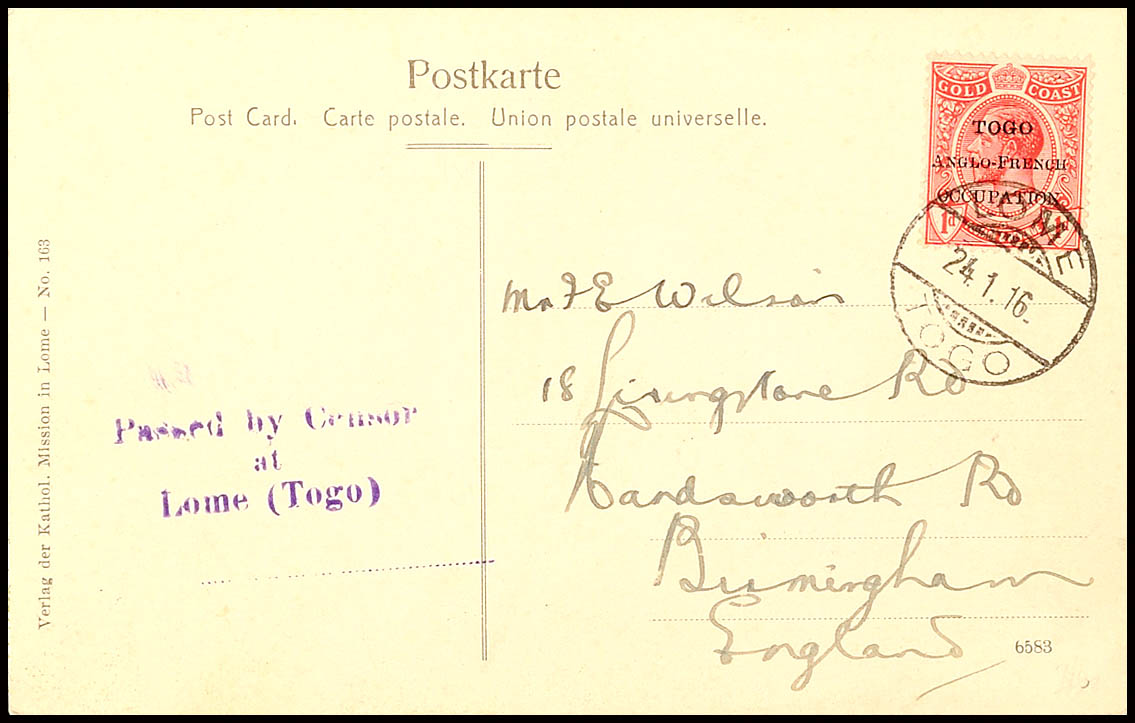 Postkarte
Post Card. Carte postale. Union postale universelle.
GOLD COAST
TOGO
ANGLO-FRENCH
OCCUPATION
1d 1d
LOME
24.1.16
TOGO
Mr F E Wilson
18 Livingstone Rd
Handsworth Rd
Birmingham
England
Passed by Censor
at
Lome (Togo)
Verlag der Kathol. Mission in Lome — No. 163
6583